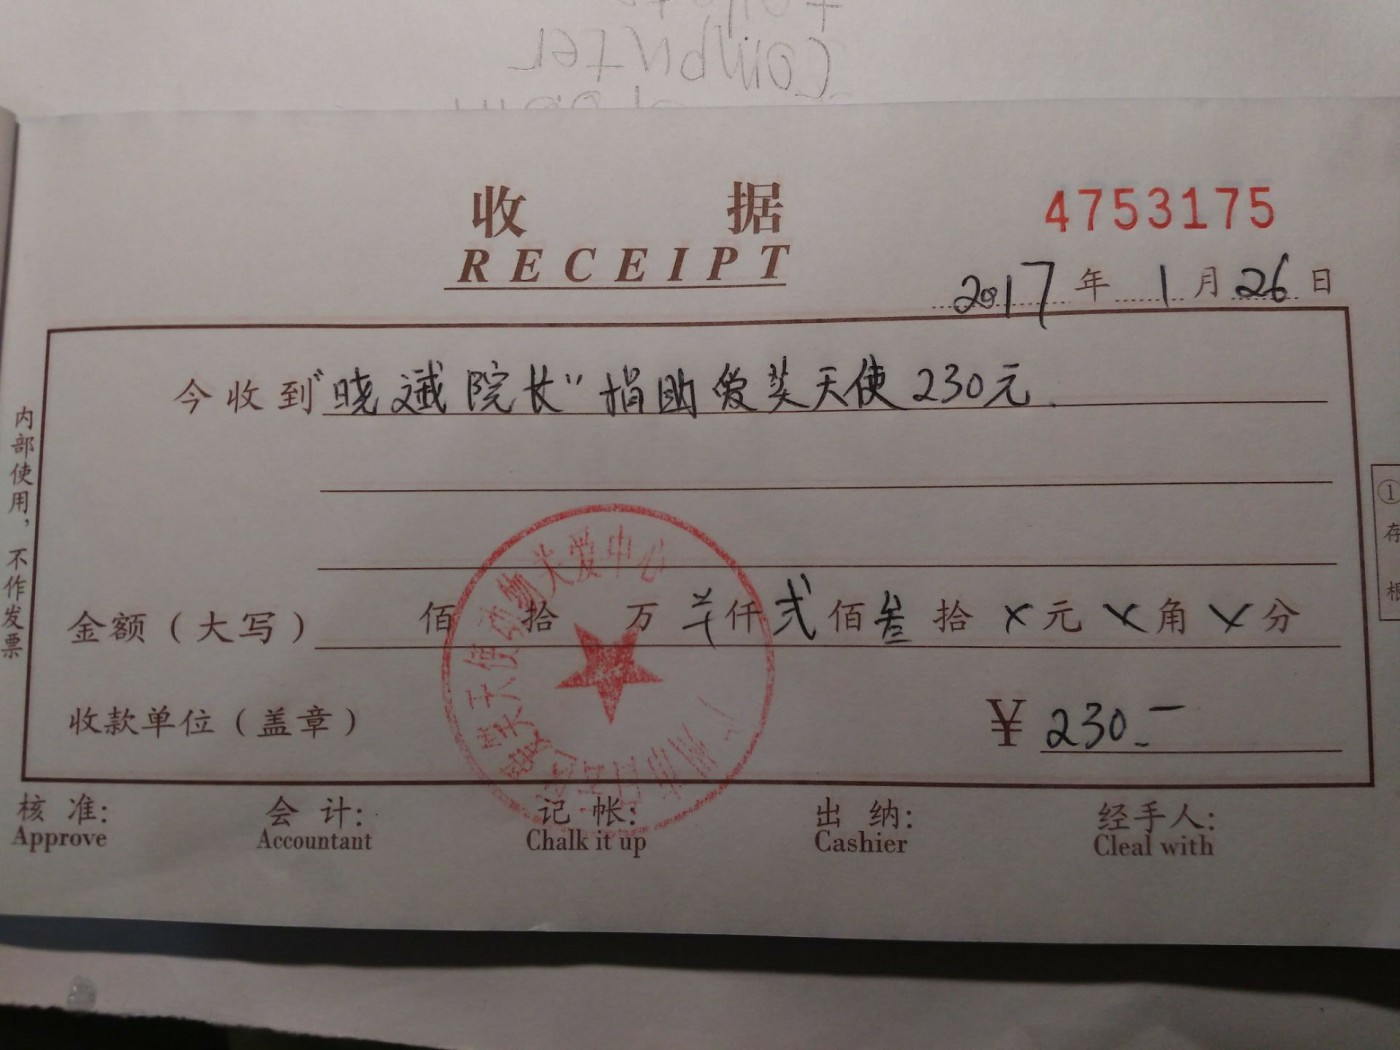 computer
收 据
4753175
RECEIPT
2017年1月26日
今收到"晓斌院长"捐助爱芙天使230元.
内部使用，不作发票
①存根
金额（大写） 佰 拾 万 仟 贰 佰 叁 拾 × 元 × 角 × 分
收款单位（盖章） ¥ 230.-
天使动物关爱中心
核 准: 会 计: 记 帐: 出 纳: 经手人:
Approve Accountant Chalk it up Cashier Cleal with